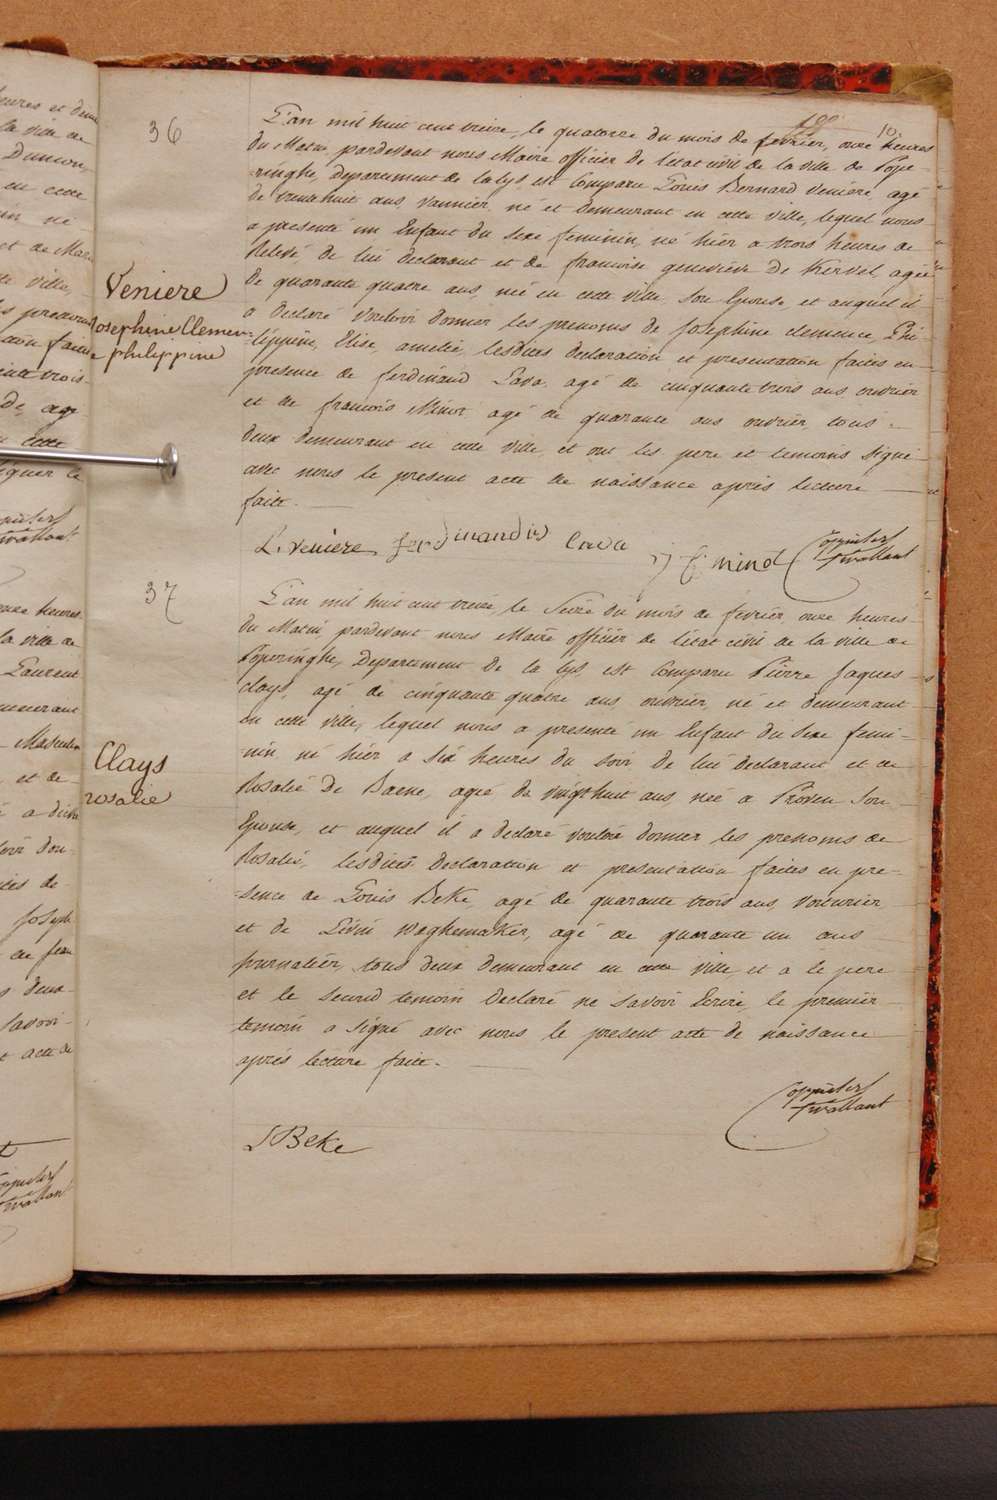 36
199
10.
L'an mil huit cent treize, le quatorze du mois de fevrier, onze heures
du Matin, pardevant nous Maire officier de l'etat civil de la ville de Pope-
-ringhe, departement de la lys, est Comparu Louis Bernard Veniere, agé
de trente huit ans, Vannier, né et demeurant en cette ville, lequel nous
a presenté un Enfant du sexe feminin, né hier a trois heures de
Relevé, de lui declarant et de francoise genevieve de Kervel, agée
de quarante quatre ans, née en cette ville, son Epouse et auquel il
a declaré vouloir donner les prenoms de Josephine clemence, Phi-
-lippine, Elise, amelie, lesdites declaration et presentation faites en
presence de ferdinand Lava, agé de cinquante trois ans ouvrier
et de francois Minot, agé de quarante ans ouvrier, tous-
deux demeurant en cette ville, et ont les pere et temoins signé
avec nous le present acte de naissance après lecture
faite.
Veniere
Josephine Clemen-
philippine
L. Veniere ferdinandus lava f. minot
37
L'an mil huit cent treize, le Seize du mois de fevrier, onze heures
du Matin, pardevant nous Maire officier de l'etat civil de la ville de
Poperinghe, Departement de la lys, est Comparu Pierre Jaques
clays, agé de cinquante quatre ans ouvrier, né et demeurant
en cette ville, lequel nous a presenté un Enfant du Sexe femi-
-nin né hier a six heures du soir de lui declarant et de
Rosalie De Baene, agée de vingt huit ans, née a Proven son
Epouse, et auquel il a declaré vouloir donner les prenoms de
Rosalie, lesdites declaration et presentation faites en pre-
-sence de Louis Beke, agé de quarante trois ans, Voiturier
et de Livin Weghemaker, agé de quarante un ans
journalier, tous deux demeurant en cette ville et a le pere
et le second temoin declaré ne savoir Ecrire, le premier
temoin a signé avec nous le present acte de naissance
après lecture faite.
Clays
rosalie
L Beke